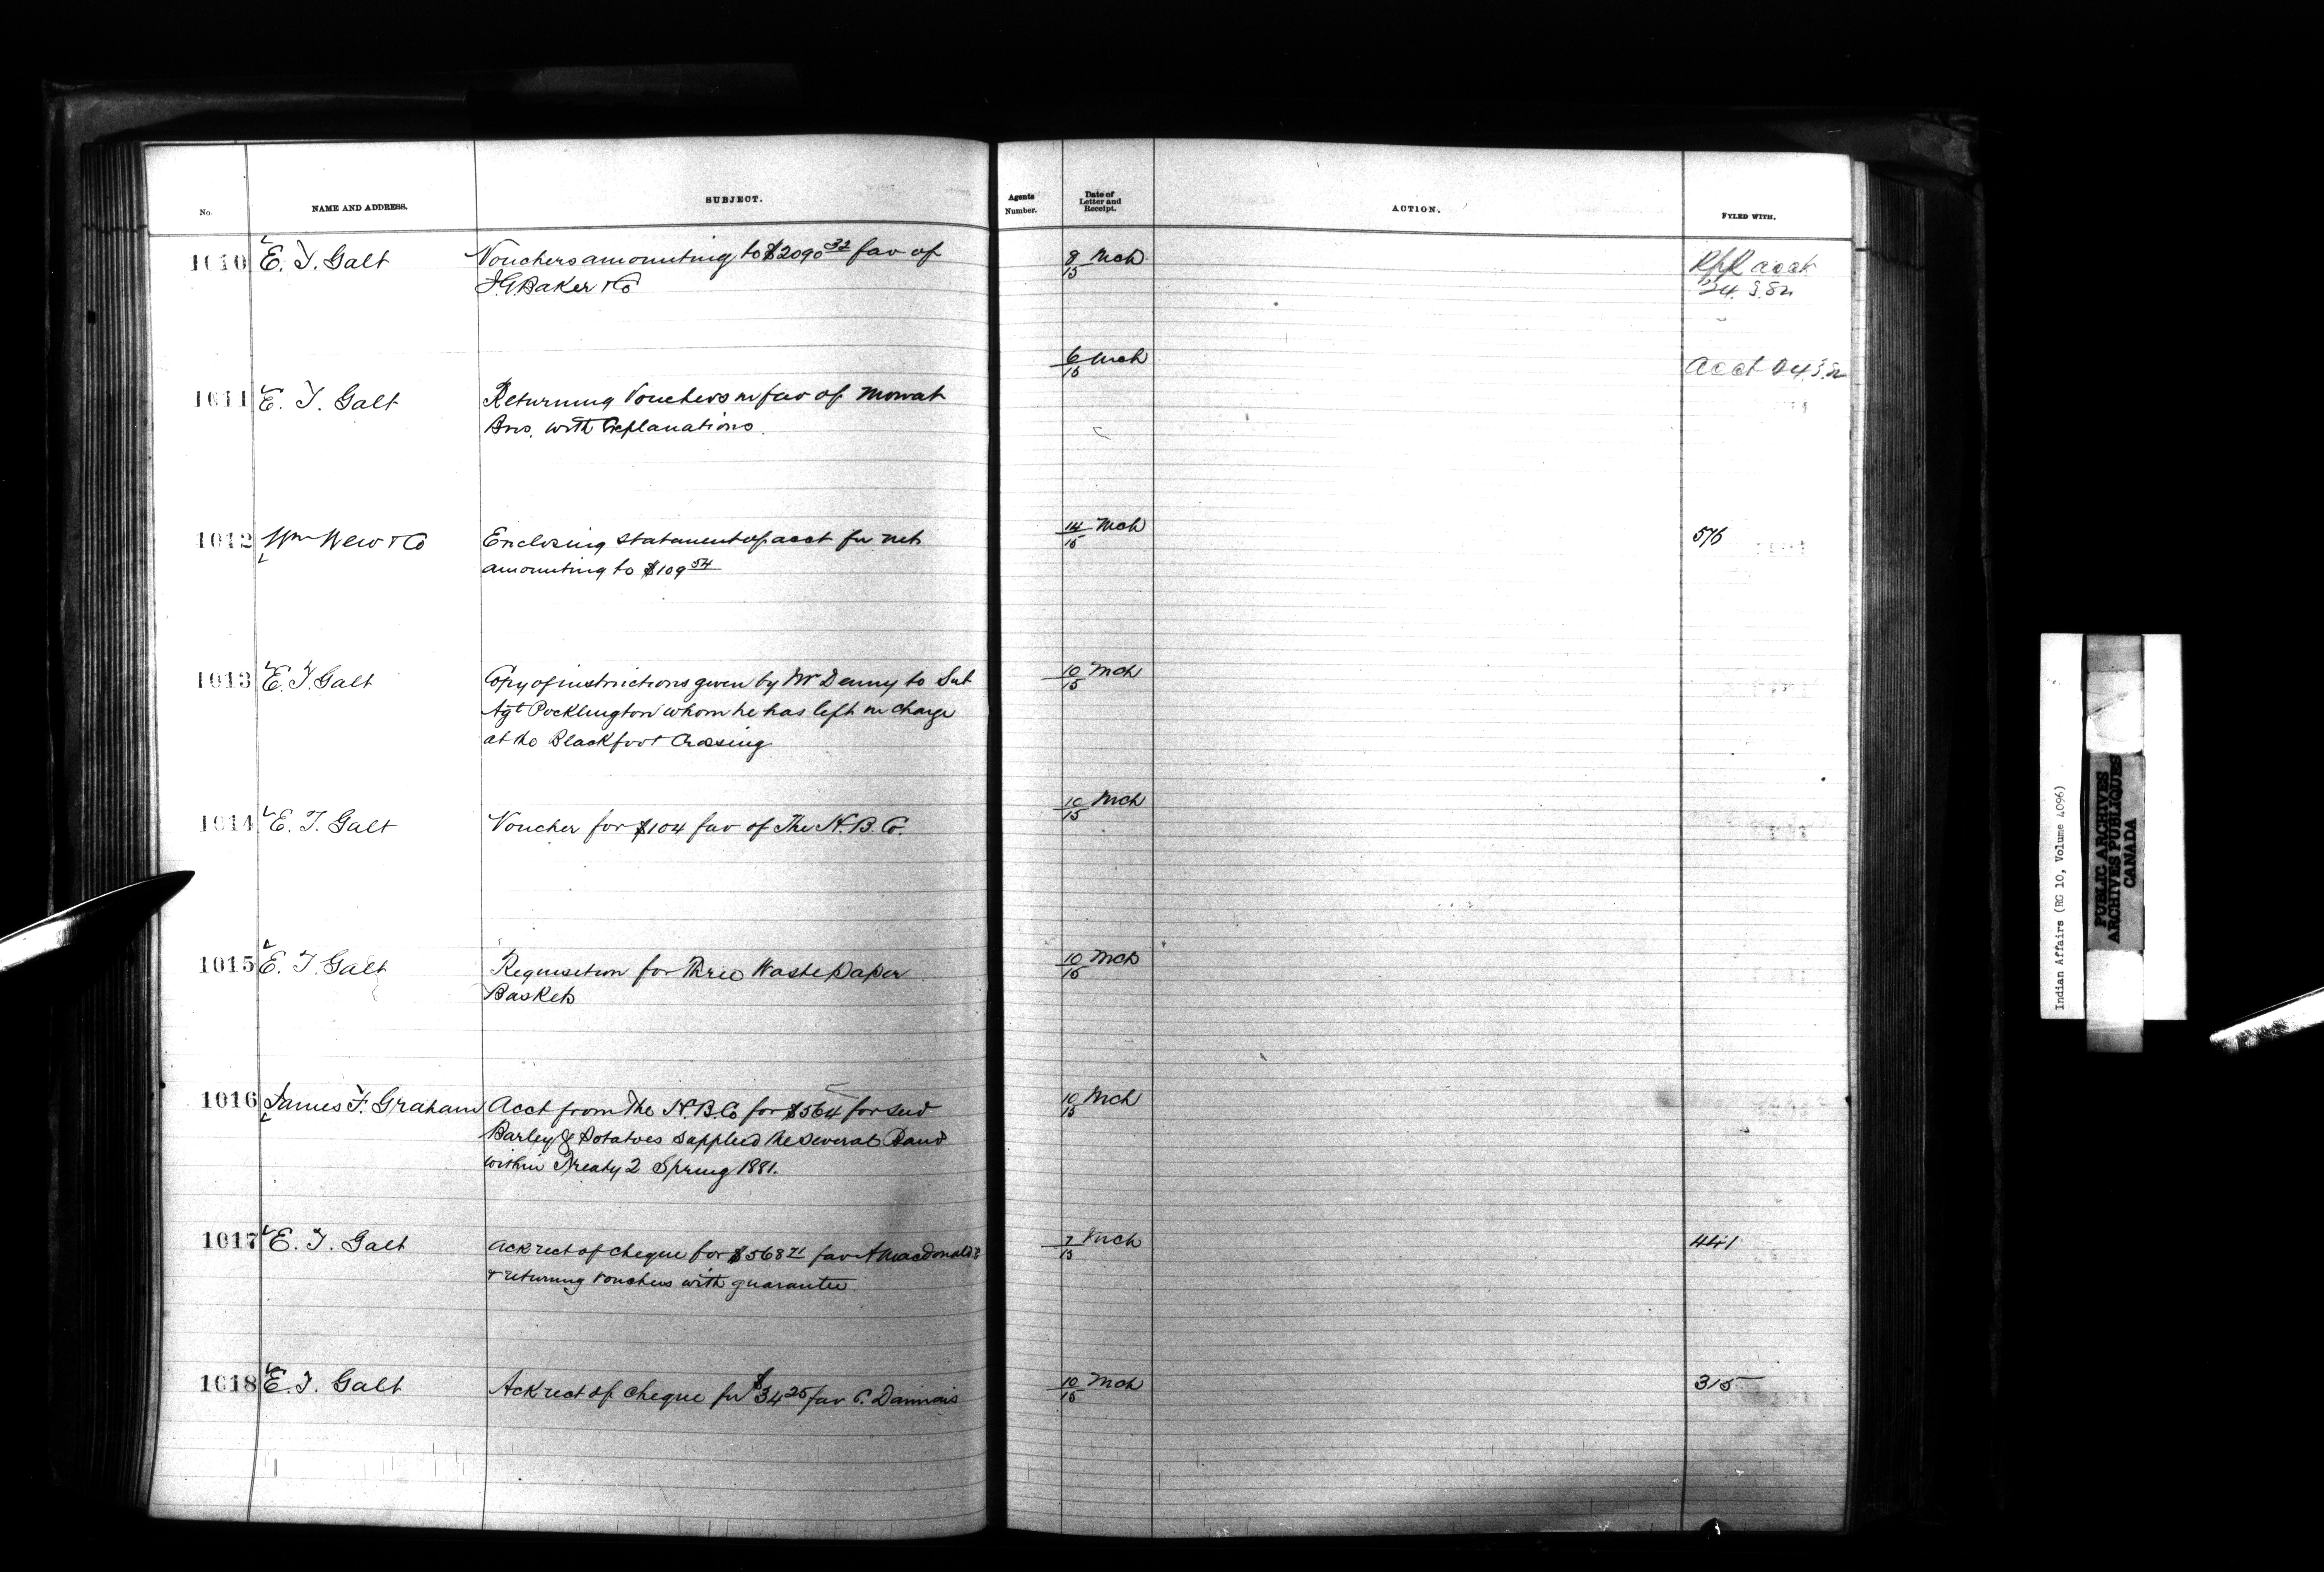 No. NAME AND ADDRESS. SUBJECT. Agents Number. Date of Letter and Receipt. ACTION. FYLED WITH.
1010 E. T. Galt Vouchers amounting to $2090 32 fav of 8/15 Mch acct
I.G. Baker & Co 24.3.82
6/15 Mch Acct 24.3.82
1011 E. T. Galt Returning Vouchers in fav of Mowat
Bros. with Explanations.
1012 Wm New & Co Enclosing statement of acct for nets 14/15 Mch 576
amounting to $109 54
1013 E. T. Galt Copy of instructions given by Mr Denny to Sub 10/15 Mch
Agt Pocklington whom he has left in charge
at the Blackfoot Crossing
1014 E. T. Galt Voucher for $104 fav of The H. B. Co. 10/15 Mch
1015 E. T. Galt Requisition for Three Waste paper 10/15 Mch
Baskets
1016 James F. Graham Acct from The H. B. Co for $564 for seed 10/15 Mch
Barley & Potatoes supplied the several Bands
within Treaty 2 Spring 1881.
1017 E. T. Galt Ack rect of cheque for $568 71 fav A Macdonald 7/15 Mch 441
& returning vouchers with guarantee.
1018 E. T. Galt Ack rect of cheque for $34 25 fav C. Damais 10/15 Mch 315
Indian Affairs (RG 10, Volume 4096)
PUBLIC ARCHIVES
ARCHIVES PUBLIQUES
CANADA